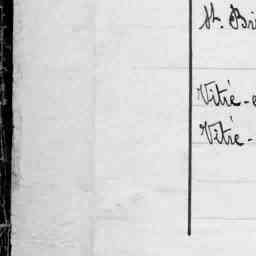 St. Bri
Vitré - e
Vitré -